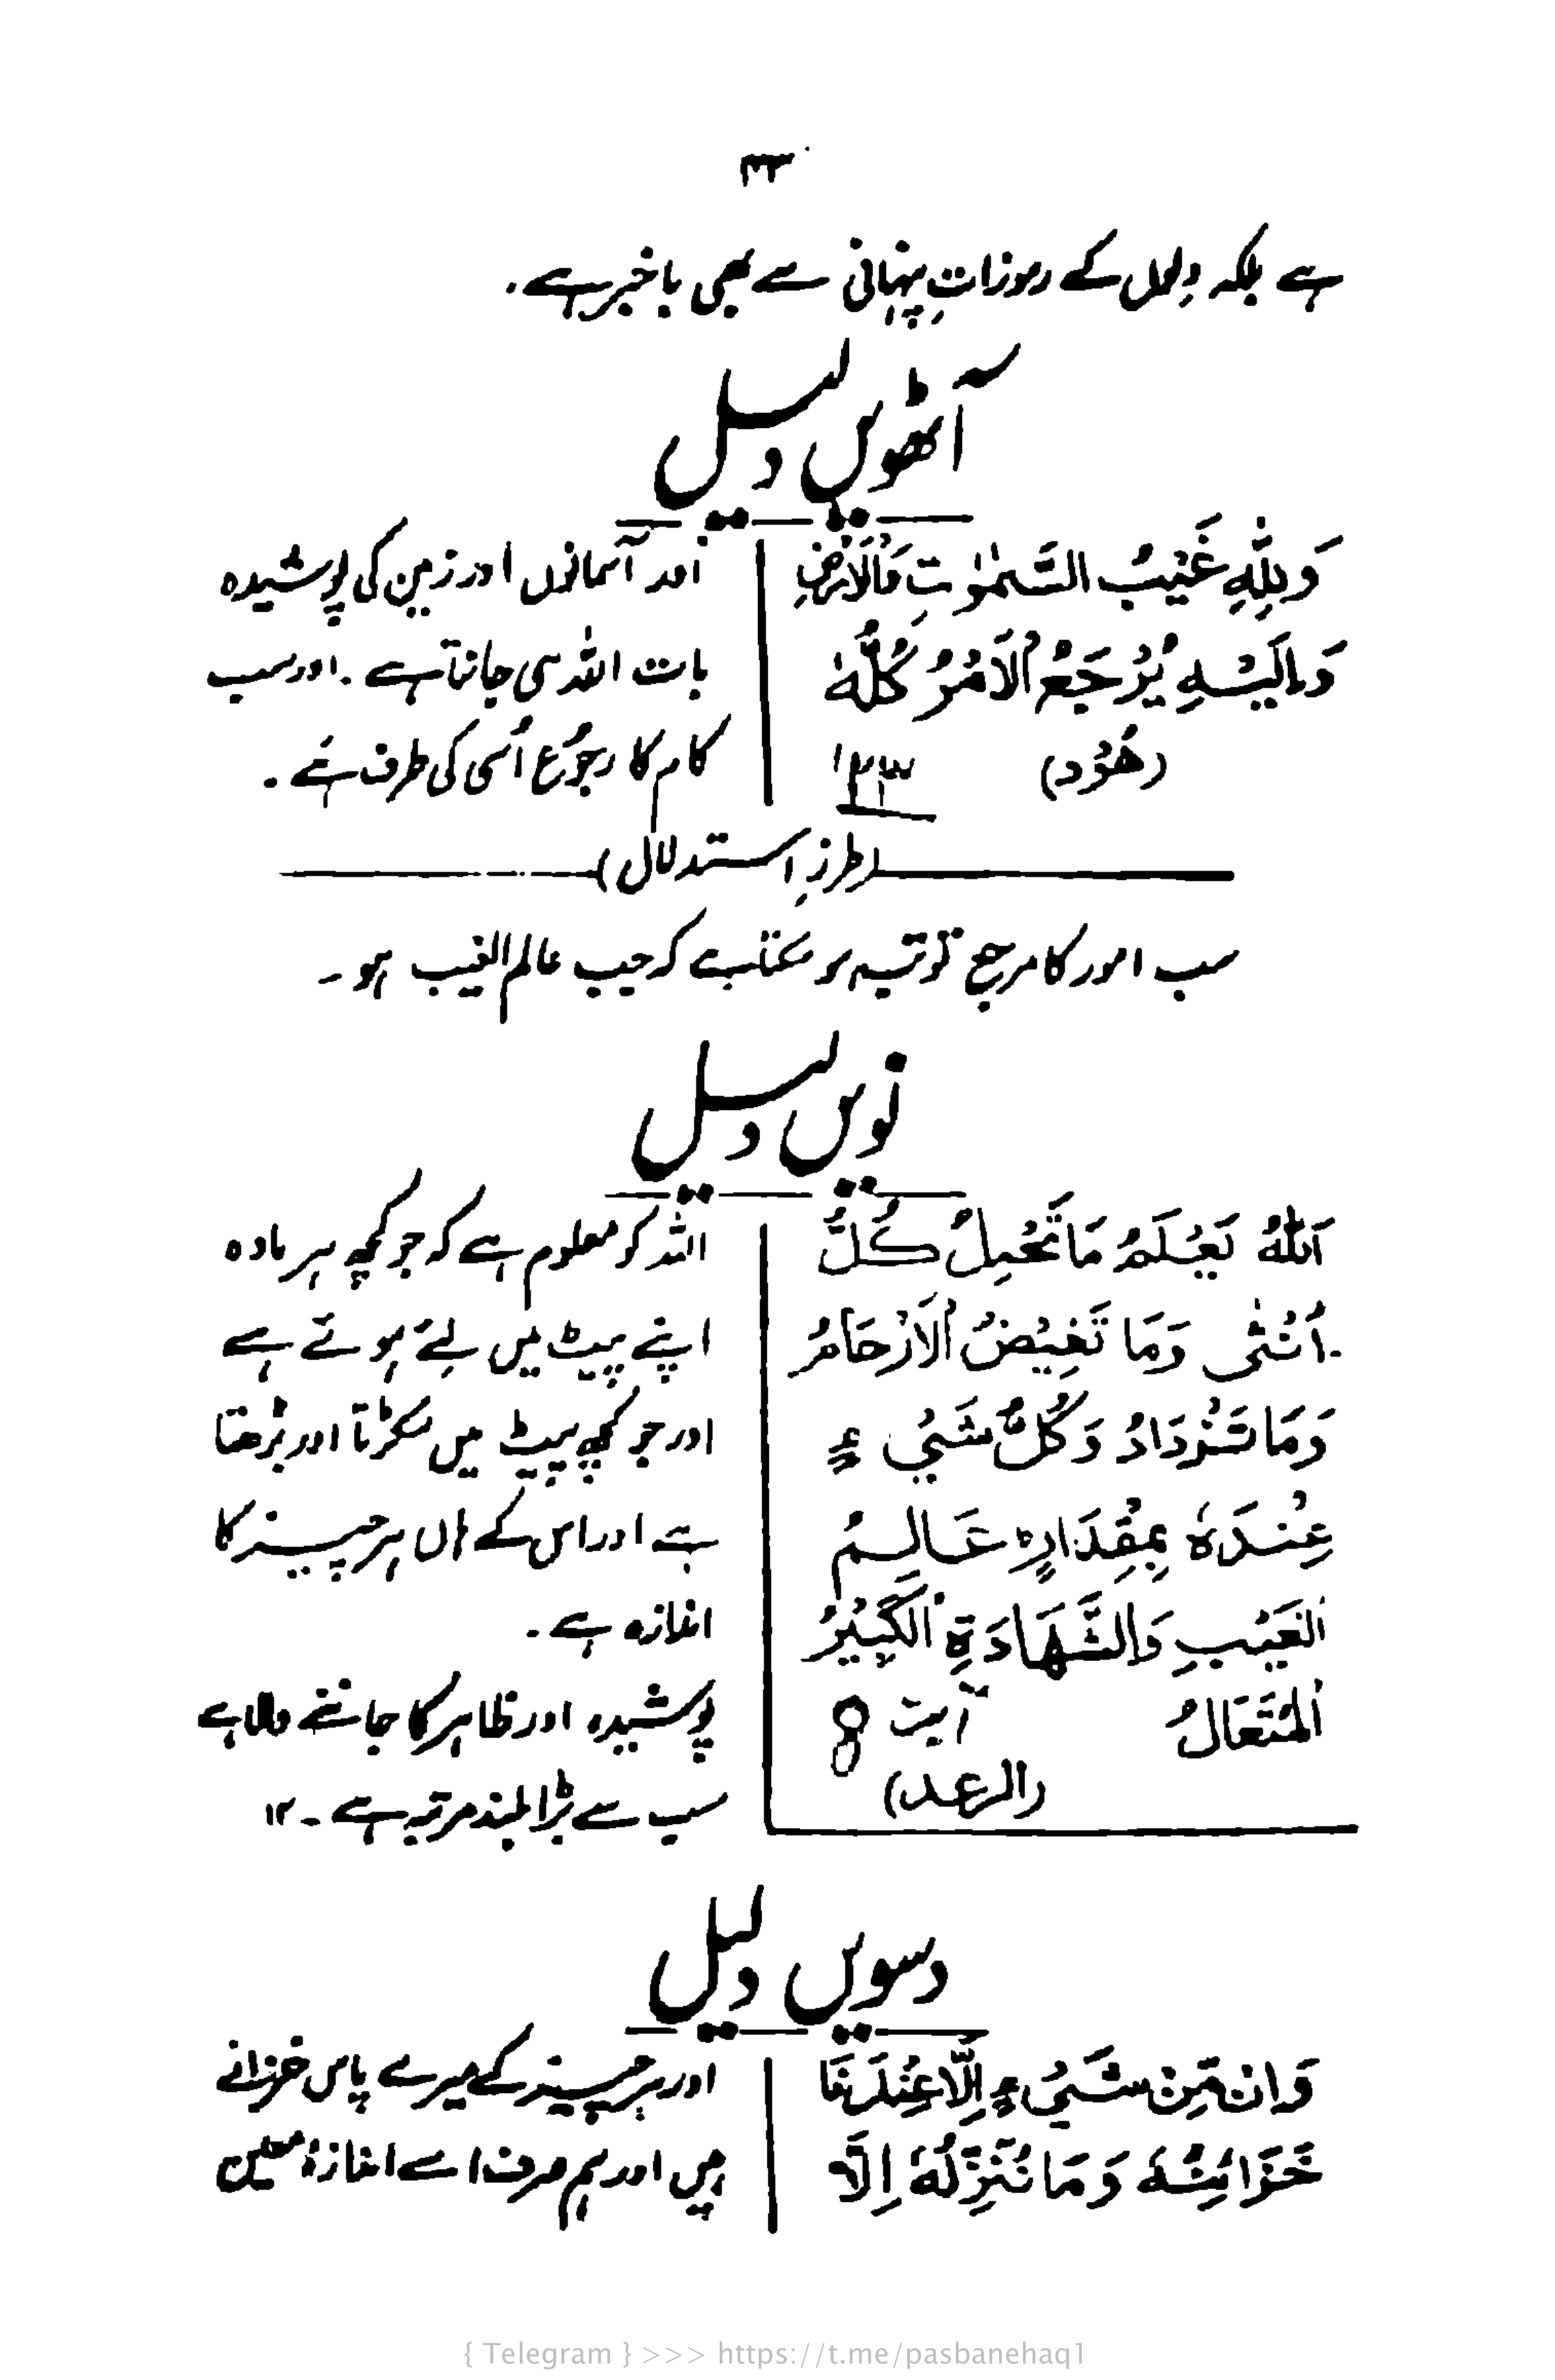 ۳۳
ہے بلکہ دِلوں کے رموزاتِ پنہانی سے بھی باخبر ہے.
آٹھویں دلیل
وَ لِلّٰهِ غَیْبُ السَّمٰوٰتِ وَالْاَرْضِ
وَ اِلَیْهِ یُرْجَعُ الْاَمْرُ كُلُّهٗ
(ھُوْد) ۱۲۳
اور آسمانوں اور زمین کی پوشیدہ
بات اللہ ہی جانتا ہے . اور سب
کام کا رجوُع اُسی کی طرف ہَے .
(طرزِ استدلال)
سب امور کا مرجع تو تب ہو سکتا ہے کہ جب عالم الغیب ہو ۔
نویں دلیل
اَللّٰهُ یَعْلَمُ مَا تَحْمِلُ كُلُّ
اُنْثٰى وَمَا تَغِیْضُ الْاَرْحَامُ
وَمَا تَزْدَادُ وَكُلُّ شَیْءٍ
عِنْدَهٗ بِمِقْدَارٍ ہ عَالِمُ
الْغَیْبِ وَالشَّهَادَةِ الْكَبِیْرُ
الْمُتَعَالُ آیت 8
(الرعد)
اللہ کو معلوم ہے کہ جو کچھ ہر مادہ
اپنے پیٹ میں لئے ہوتے ہے
اور جو کچھ پیٹ میں سکڑتا اور بڑھتا
ہے اور اس کے ہاں ہر چیز کا
اندازہ ہے ۔
پوشیدہ اور ظاہر کا جاننے والا ہے
سب سے بڑا بلند مرتبہ ہے ۔ ۱۲
دسویں دلیل
وَ انْ مِّنْ شَیْءٍ اِلَّا عِنْدَنَا
خَزَائِنُهٗ وَ مَا نُنَزِّلُهٗ اِلَّا
اور ہر چیز کے میرے پاس خزانے
ہیں اور ہم صرف اسے اندازۂ معین
{ Telegram } >>> https://t.me/pasbanehaq1